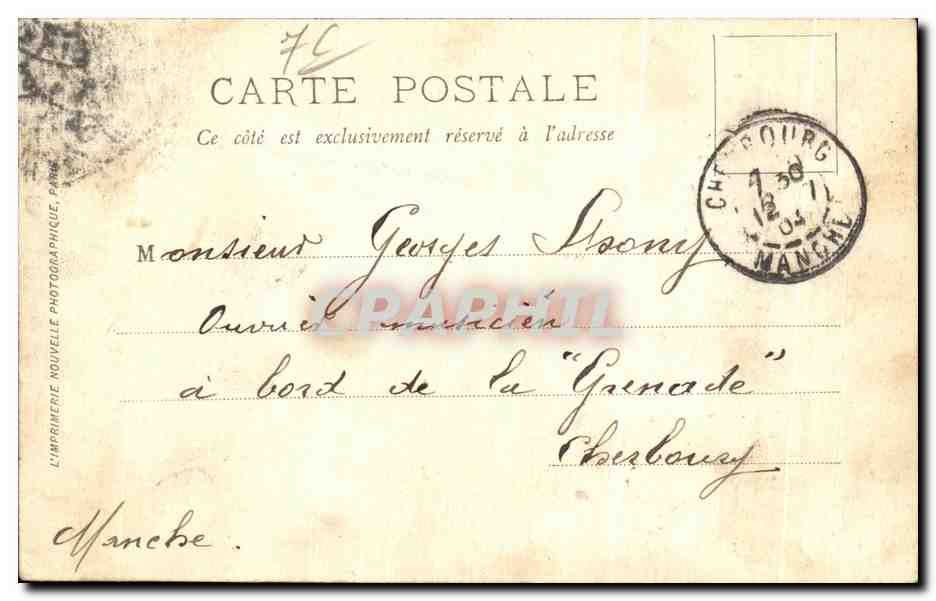 7C
CARTE POSTALE
Ce côté est exclusivement réservé à l'adresse
CHERBOURG
7 30
12
03
MANCHE
Monsieur Georges
CPAPHIL
Ouvrier musicien
à bord de la "Grenade"
Cherbourg
Manche.
L'IMPRIMERIE NOUVELLE PHOTOGRAPHIQUE, PARIS